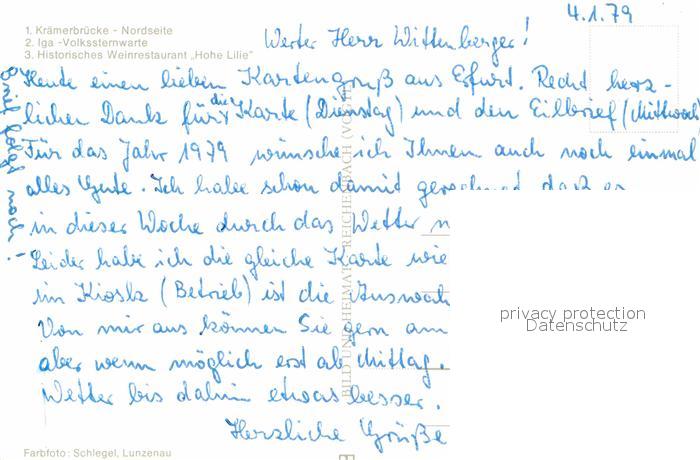 4.1.79
1. Krämerbrücke - Nordseite
2. Iga -Volkssternwarte
3. Historisches Weinrestaurant „Hohe Lilie"
Werter Herr Wittenberger!
Heute einen lieben Kartengruß aus Erfurt. Recht herz-
lichen Dank für die Karte (Dienstag) und den Eilbrief (Mittwoch)
Für das Jahr 1979 wünsche ich Ihnen auch noch einmal
alles Gute. Ich habe schon damit gerechnet, daß es
in dieser Woche durch das Wetter
Leider habe ich die gleiche Karte wie
im Kiosk (Betrieb) ist die Auswah
Von mir aus können Sie gern am
aber wenn möglich erst ab Mittag.
Wetter bis dahin etwas besser.
Herzliche Grüße
Brief folgt noch!
BILD UND HEIMAT REICHENBACH (VOGTL)
privacy protection
Datenschutz
Farbfoto: Schlegel, Lunzenau